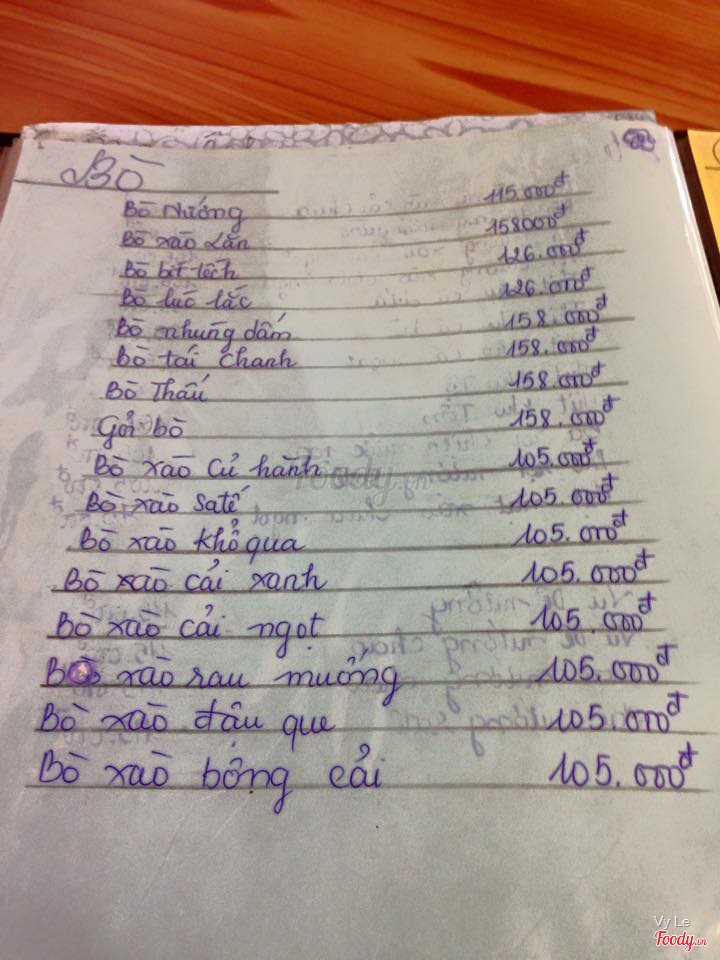 Bò
Bò Nướng 115.000đ
Bò xào Lăn 158000đ
Bò bít tếch 126.000đ
Bò lúc lắc 126.000đ
Bò nhúng dấm 158.000đ
Bò tái chanh 158.000đ
Bò Thấu 158.000đ
Gỏi bò 158.000đ
Bò xào củ hành 105.000đ
Bò xào Satế 105.000đ
Bò xào khổ qua 105.000đ
Bò xào cải xanh 105.000đ
Bò xào cải ngọt 105.000đ
Bò xào rau muống 105.000đ
Bò xào đậu que 105.000đ
Bò xào bông cải 105.000đ
Foody.vn
Vy Le
Foody.vn